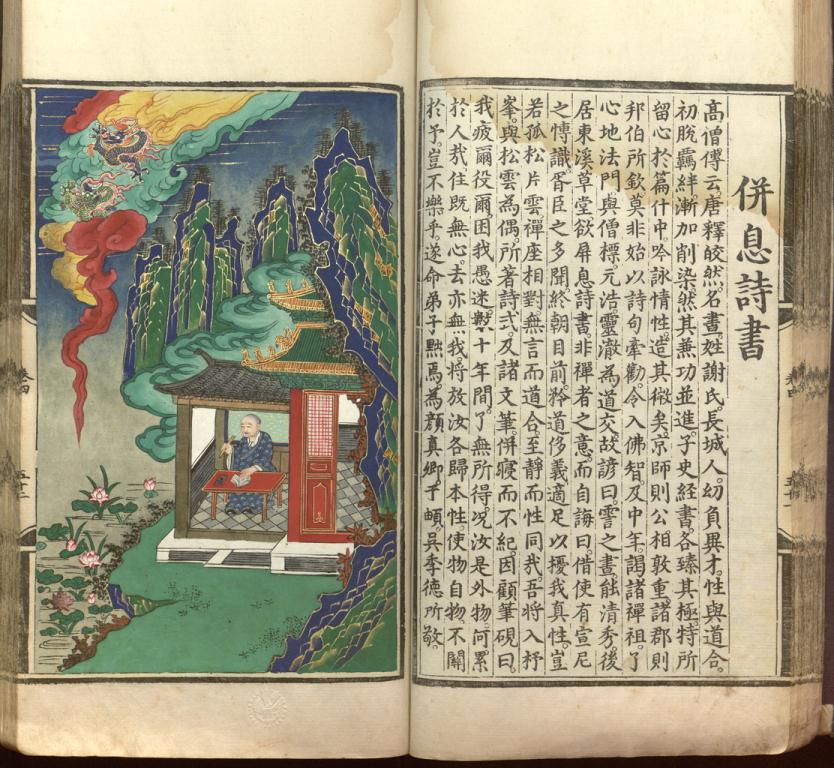 併息詩書
高僧傳云。唐釋皎然。名晝。姓謝氏。長城人。幼負異才。性與道合。
初脫羈絆。漸加削染。然其兼功並進。子史經書。各臻其極。特所
留心於篇什中。吟詠情性。造其微矣。京師則公相敦重。諸郡則
邦伯所欽。莫非始以詩句牽勸。令入佛智。及中年。謁諸禪祖。了
心地法門。與僧標。元浩。靈澈為道交。故諺曰。霅之晝。能清秀。後
居東溪草堂。欲屏息詩書。非禪者之意。而自誨曰。借使有宣尼
之愽識。胥臣之多聞。終朝目前。矜道侈義。適足以擾我真性。豈
若孤松片雲。禪座相對。無言而道合。至靜而性同。我吾將入杼
峯。與松雲為偶。所著詩式。及諸文筆。併寢而不紀。因顧筆硯曰。
我疲爾役。爾困我愚。迷數十年間。了無所得。况汝是外物。何累
於人哉。住既無心。去亦無我。將放汝各歸本性。使物自物。不關
於予。豈不樂乎。遂命弟子黜焉。為顏真卿。于頔。吳季德所敬。
卷四
五十二